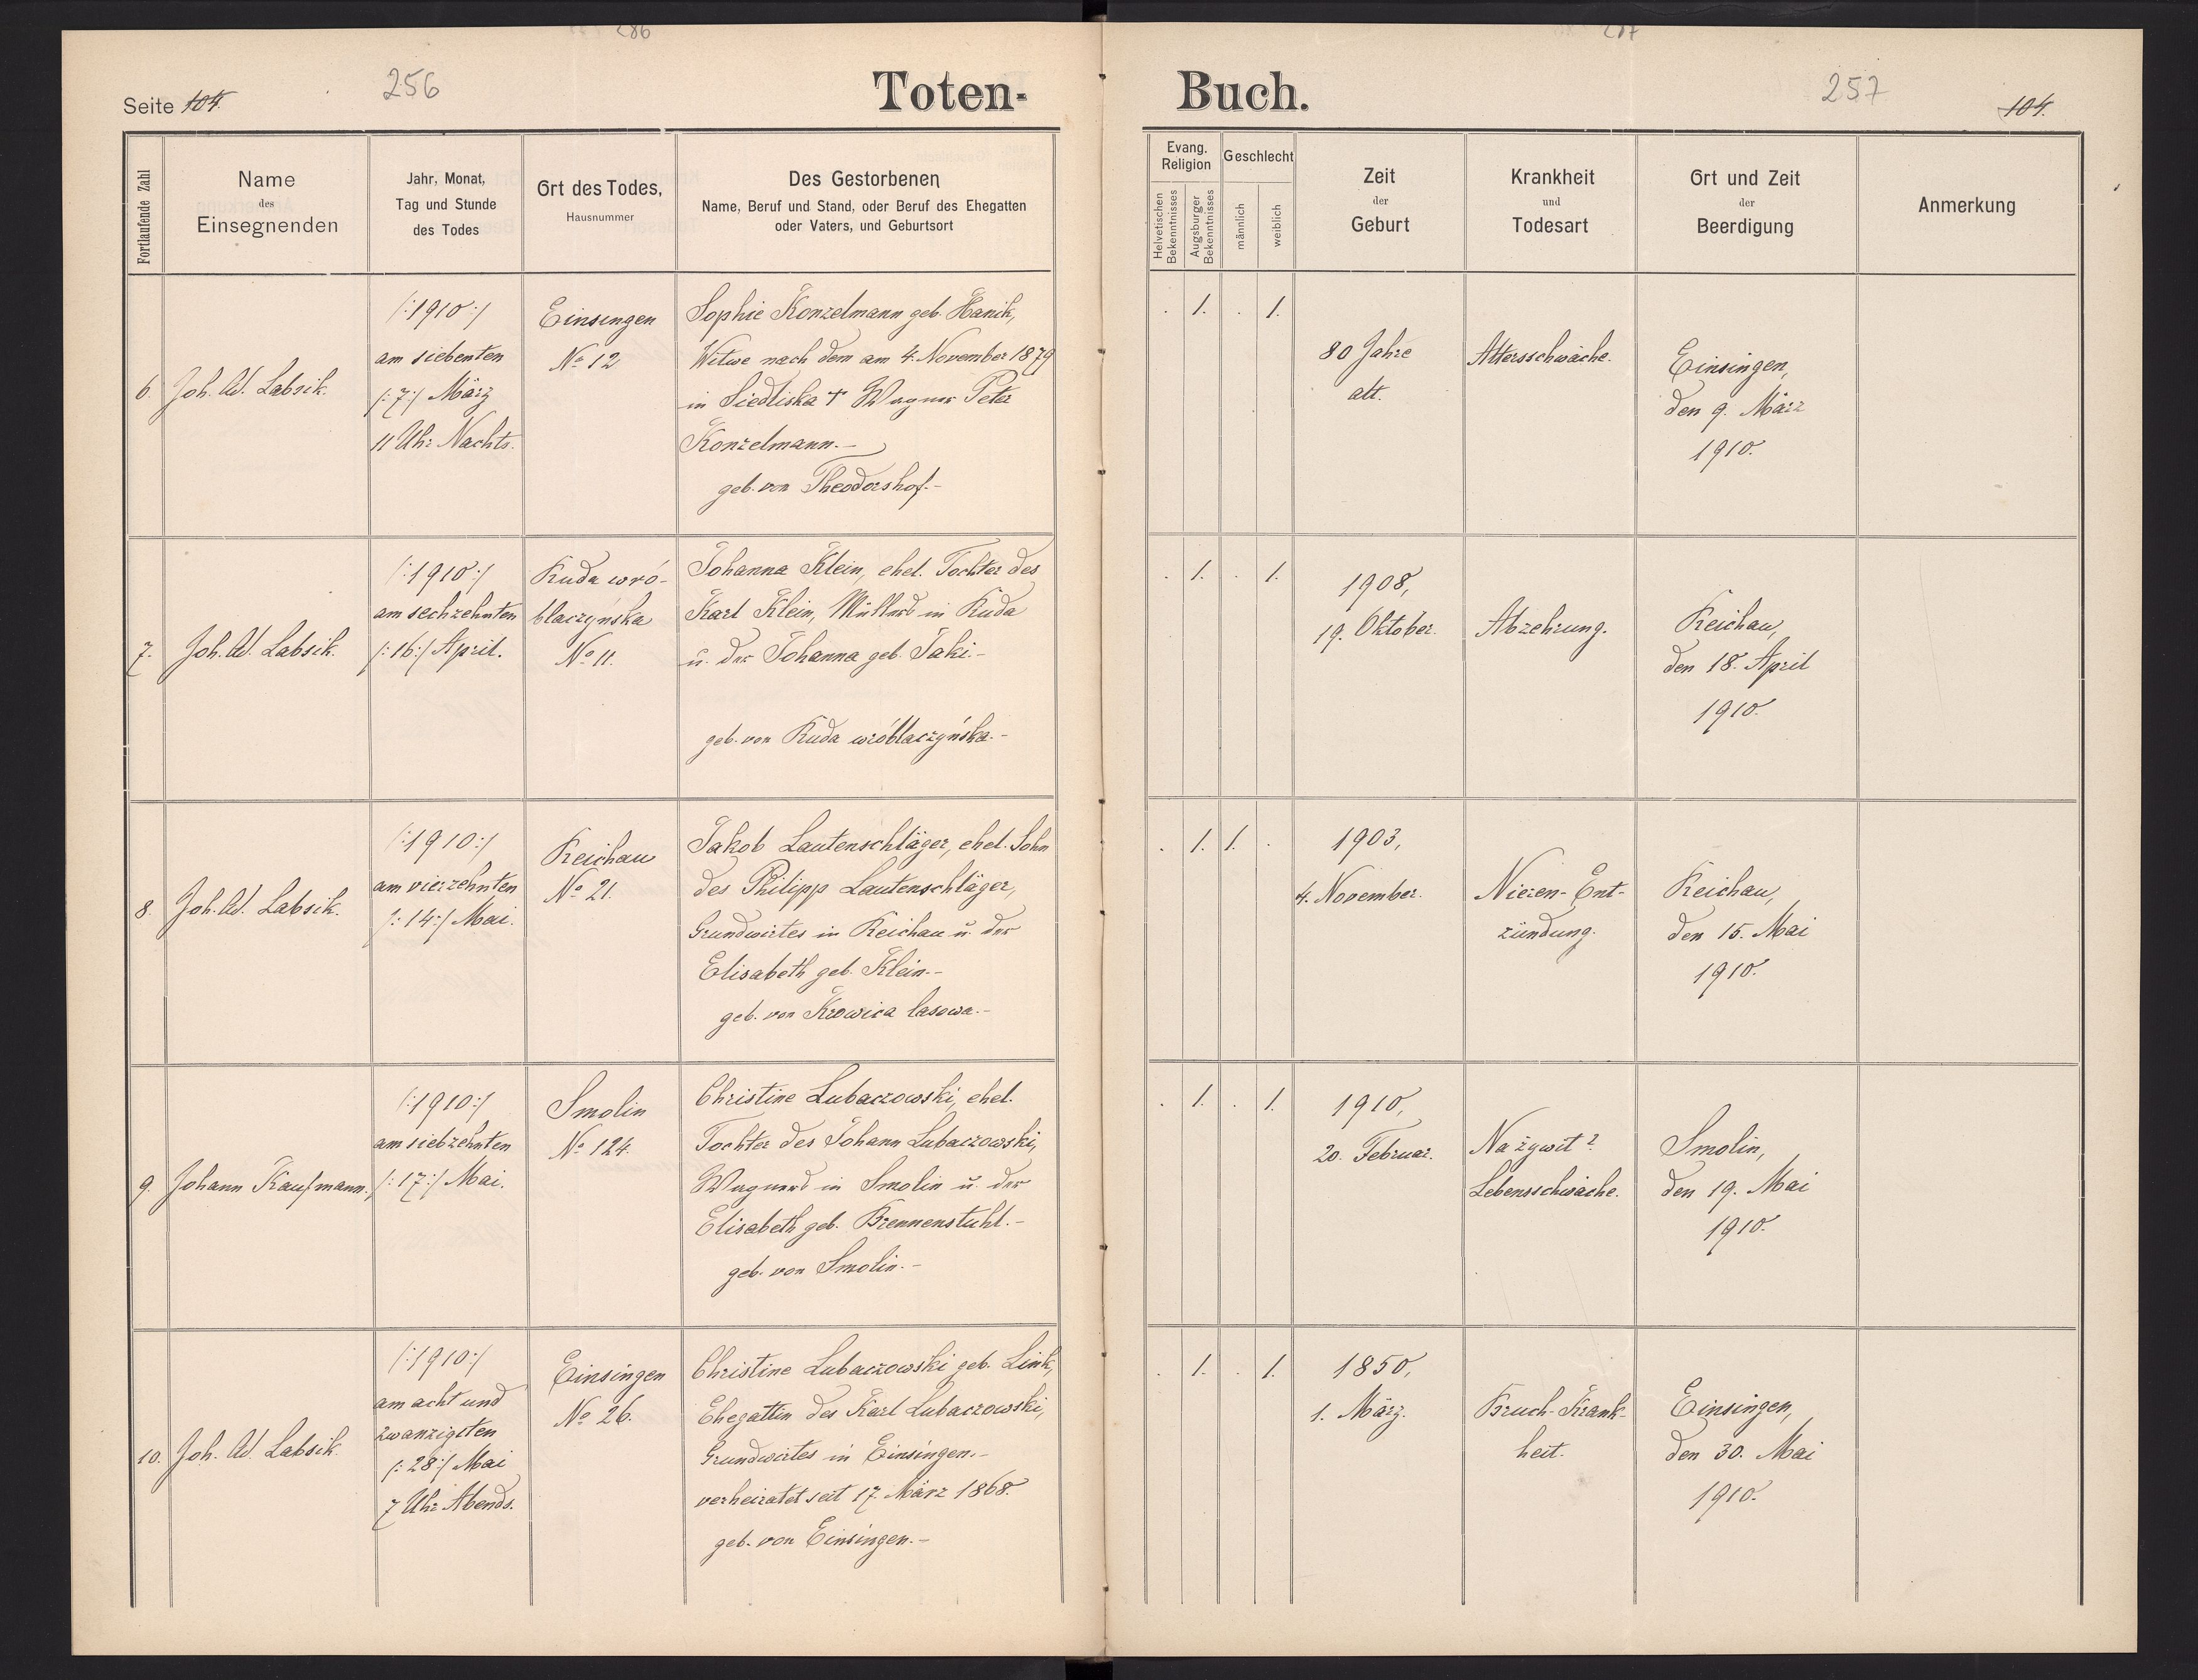 286
287
256
257
Seite 104.
Toten-
Buch.
104.
Fortlaufende Zahl
Name
des
Einsegnenden
Jahr, Monat,
Tag und Stunde
des Todes
Ort des Todes,
Hausnummer
Des Gestorbenen
Name, Beruf und Stand, oder Beruf des Ehegatten
oder Vaters, und Geburtsort
Evang.
Religion
Helvetischen
Bekenntnisses
Augsburger
Bekenntnisses
Geschlecht
männlich
weiblich
Zeit
der
Geburt
Krankheit
und
Todesart
Ort und Zeit
der
Beerdigung
Anmerkung
6.
Joh. Ad. Labsik.
/:1910:/
am siebenten
/:7:/ März
11 Uhr Nachts.
Einsingen
No 12
Sophie Konzelmann geb. Hanik,
Witwe nach dem am 4. November 1879
in Siedliska † Wagner Peter
Konzelmann.-
geb. von Theodorshof.-
. 1. . 1.
80 Jahre
alt.
Altersschwäche.
Einsingen,
den 9. März
1910.
7.
Joh. Ad. Labsik.
/:1910:/
am sechzehnten
/:16:/ April.
Ruda wró-
blaczyńska
No 11.
Johanna Klein, ehel. Tochter des
Karl Klein, Müllers in Ruda
u. der Johanna geb. Jaki.-
geb. von Ruda wróblaczyńska.-
. 1. . 1.
1908,
19. Oktober.
Abzehrung.
Reichau,
den 18. April
1910.
8.
Joh. Ad. Labsik.
/:1910:/
am vierzehnten
/:14:/ Mai.
Reichau
No 21.
Jakob Lautenschläger, ehel. Sohn
des Philipp Lautenschläger,
Grundwirtes in Reichau u. der
Elisabeth geb. Klein.-
geb. von Krowica lasowa.-
. 1. 1. .
1903,
4. November.
Nieren-Ent-
zündung.
Reichau,
den 15. Mai
1910.
9.
Johann Kaufmann.
/:1910:/
am siebzehnten
/:17:/ Mai.
Smolin
No 124.
Christine Lubaczowski, ehel.
Tochter des Johann Lubaczowski,
Wagners in Smolin u. der
Elisabeth geb. Brennenstuhl.-
geb. von Smolin.-
. 1. . 1.
1910,
20. Februar.
Na żywit?
Lebensschwäche.
Smolin,
den 19. Mai
1910.
10.
Joh. Ad. Labsik.
/:1910:/
am acht und
zwanzigsten
/:28:/ Mai
7 Uhr Abends.
Einsingen
No 26.
Christine Lubaczowski geb. Link,
Ehegattin des Karl Lubaczowski,
Grundwirtes in Einsingen.-
verheiratet seit 17. März 1868.
geb. von Einsingen.-
. 1. . 1.
1850,
1. März.
Bruch-Krank-
heit.
Einsingen,
den 30. Mai
1910.